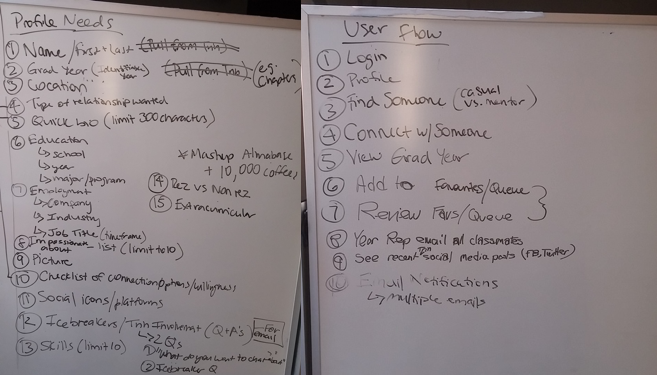 Profile Needs
① Name/first+last (Pull from Inn)
② Grad Year (identifies year) (Pull from Inn) (e.g. Chapter)
③ Location
④ Type of relationship wanted
⑤ Quick bio (limit 300 characters)
⑥ Education
↳ school
↳ year
↳ major/program
⑦ Employment
↳ Company
↳ Industry
↳ Job Title (timeframe)
⑧ Impassioned about list (limit to 10)
⑨ Picture
⑩ Checklist of connection options/willingness
⑪ Social icons/platforms
⑫ Icebreakers/Inn Involvement (Q+A's) For email
↳ 2 Qs
① "What do you want to chat
② Icebreaker Q
⑬ Skills (limit 10)
* Mashup Almabase
+ 10,000 coffees
⑭ Rez vs Non rez
⑮ Extracurricular
User Flow
① Login
② Profile
③ Find Someone (casual vs. mentor)
④ Connect w/Someone
⑤ View Grad Year
⑥ Add to Favourites/Queue
⑦ Review Favs/Queue
⑧ Year Rep email all classmates
⑨ See recent Inn social media posts (FB, Twitter)
⑩ Email Notifications
↳ multiple emails